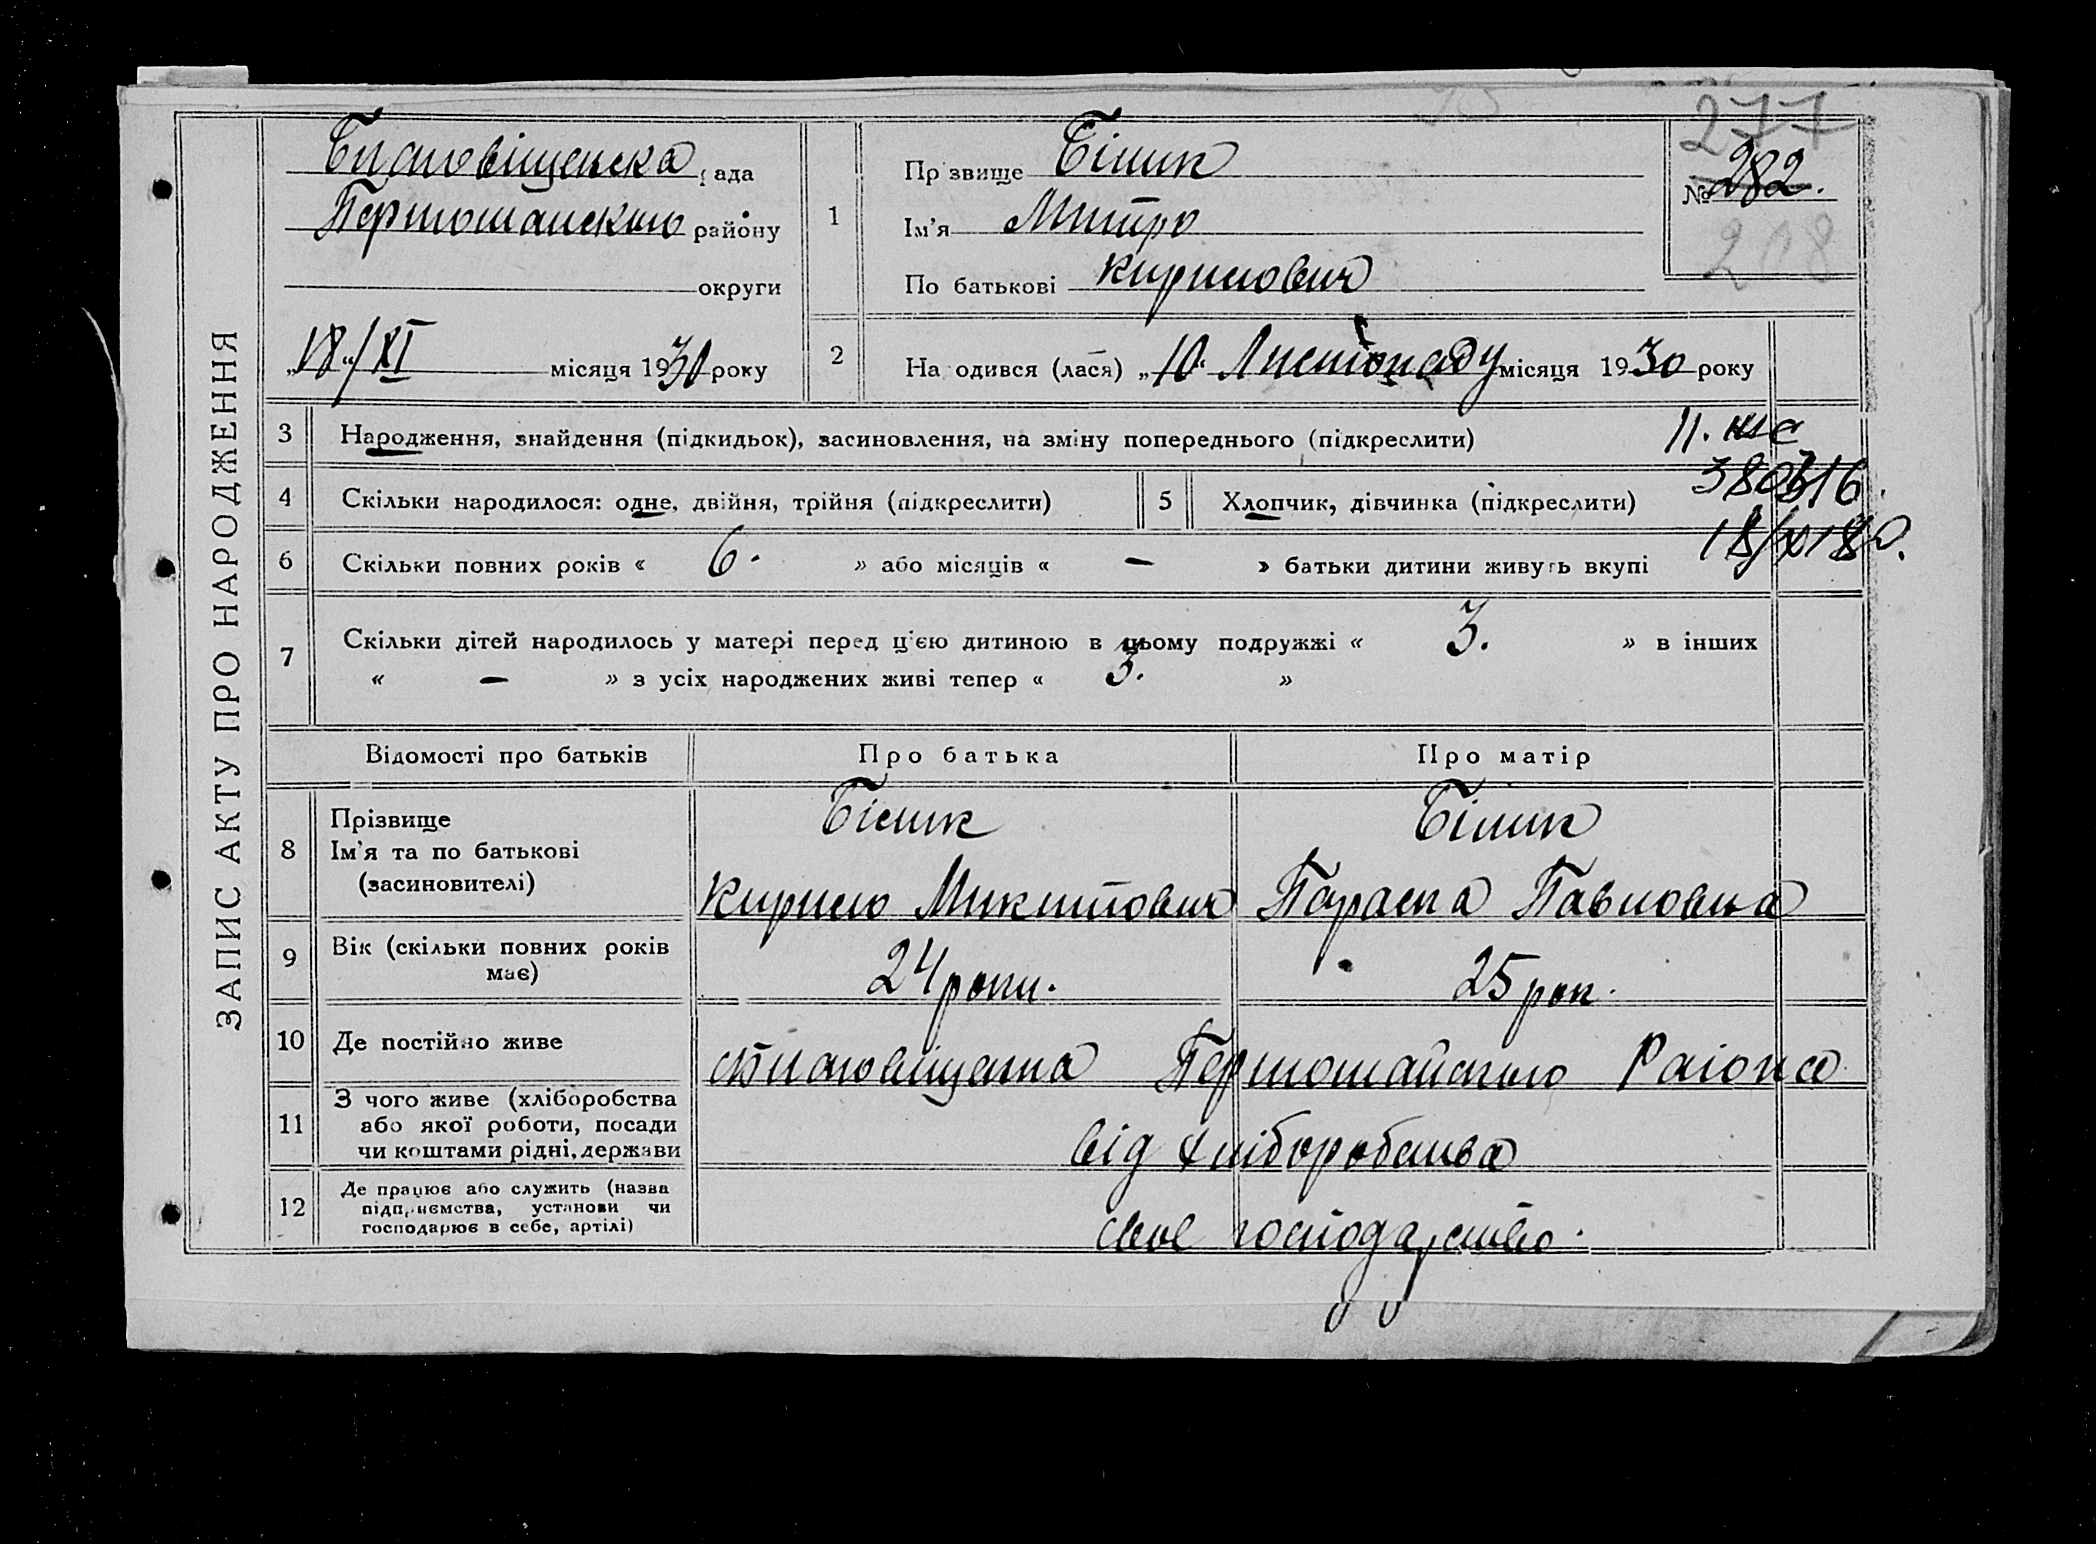 277
Благовіщенска рада
Першотравенського району
округи
№ 282.
208
1
Прізвище Білик
Ім'я Митро
По батькові Кирилович
„18“/XI місяця 1930 року
2
Народився (лася) „10“ Листопаду місяця 1930 року
ЗАПИС АКТУ ПРО НАРОДЖЕННЯ
3 Народження, знайдення (підкидьок), засиновлення, на зміну попереднього (підкреслити)
4 Скільки народилося: одне, двійня, трійня (підкреслити)
5 Хлопчик, дівчинка (підкреслити)
6 Скільки повних років « 6. » або місяців « – » батьки дитини живуть вкупі
7 Скільки дітей народилось у матері перед ц'єю дитиною в цьому подружжі « 3. » в інших
« – » з усіх народжених живі тепер « 3. »
Відомості про батьків
Про батька
Про матір
8 Прізвище
Ім'я та по батькові
(засиновителі)
Білик
Кирило Микитович
Білик
Параска Павловна
9 Вік (скільки повних років
має)
24 роки.
25 рок.
10 Де постійно живе
Першомайського Раіона
11 З чого живе (хліборобства
або якої роботи, посади
чи коштами рідні, держави
від хліборобства
12 Де працює або служить (назва
підприємства, установи чи
господарює в себе, артілі)
своє господарство.